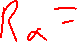 R α =